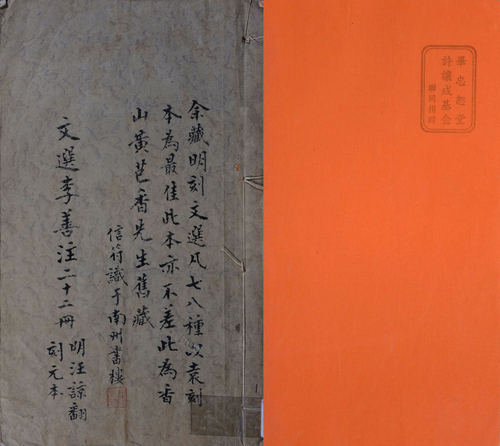 余藏明刻文選凡七八種以袁刻
本為最佳此本亦不差此為香
山黃芑香先生舊藏
信符識于南州書樓
文選李善注二十二冊
明汪諒翻
刻元本
忠恕堂
許讓成基金
聯同捐贈